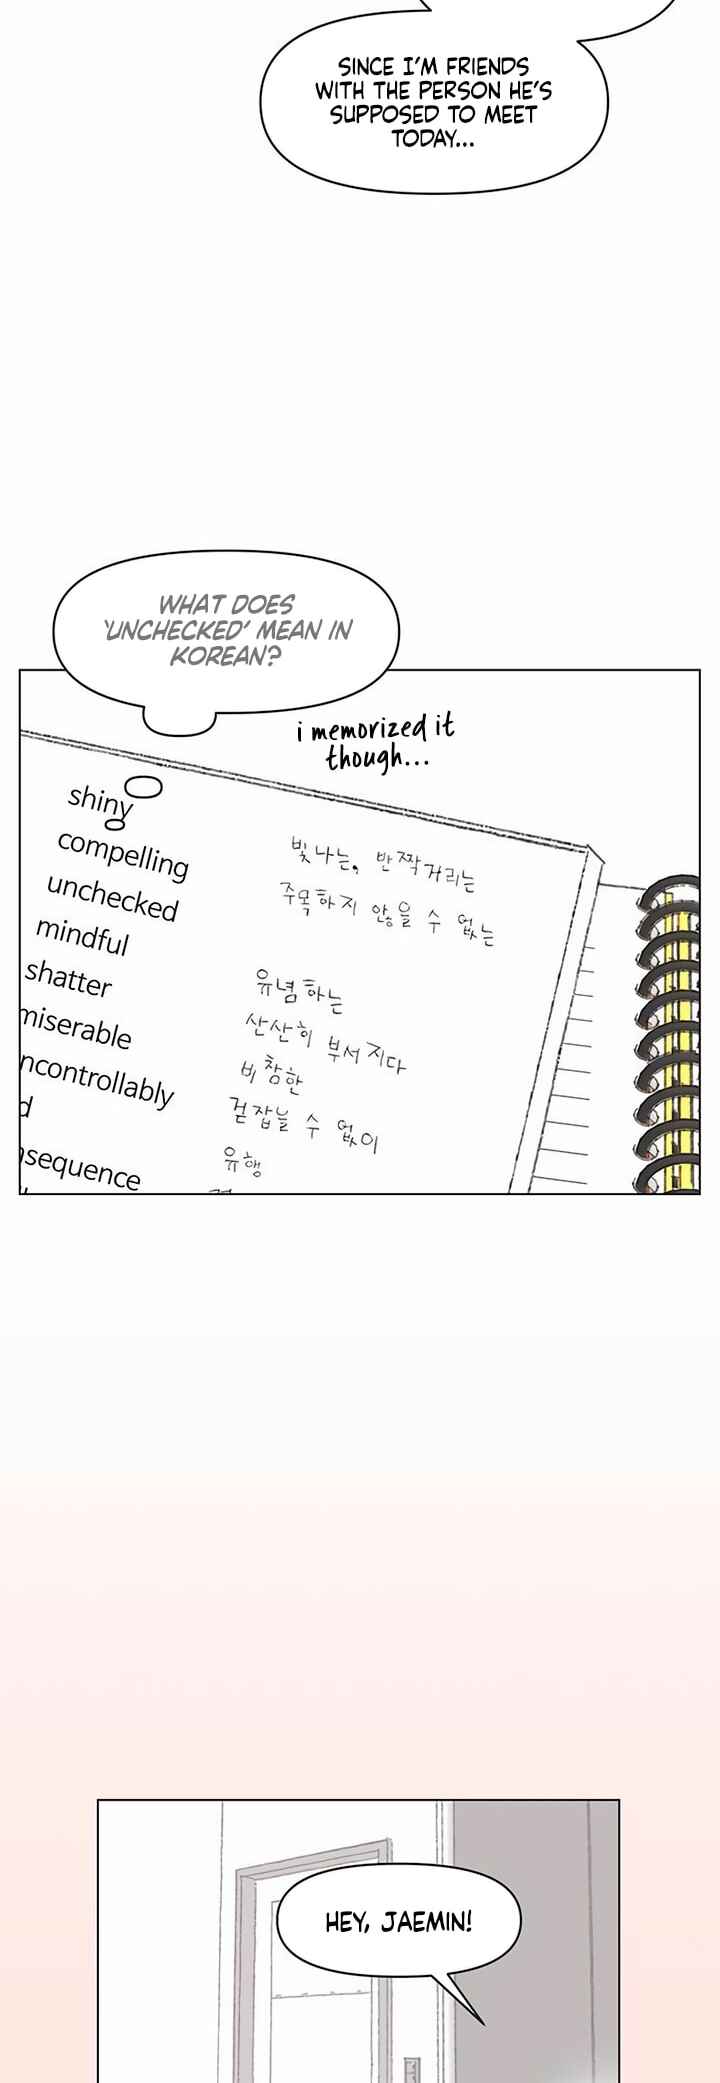 SINCE I'M FRIENDS
WITH THE PERSON HE'S
SUPPOSED TO MEET
TODAY...
WHAT DOES
'UNCHECKED' MEAN IN
KOREAN?
i memorized it
though...
shiny
빛나는, 반짝거리는
compelling
주목하지 않을 수 없는
unchecked
mindful
유념하는
shatter
산산히 부서지다
miserable
비참한
ncontrollably
걷잡을 수 없이
d
유행
nsequence
HEY, JAEMIN!